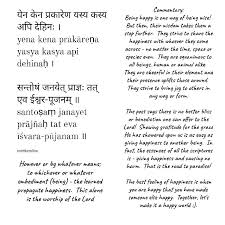 येन केन प्रकारेण यस्य कस्य
अपि देहिनः ।
yena kena prakāreṇa
yasya kasya api
dehinaḥ ।
सन्तोषं जनयेत् प्राज्ञः तत्
एव ईश्वर-पूजनम् ॥
santoṣaṃ janayet
prājñaḥ tat eva
īśvara-pūjanam ॥
However or by whatever means;
to whichever or whatever
embodiment (being) - the learned
propagate happiness. This alone
is the worship of the Lord
Commentary:
Being happy is one way of being wise!
But then, their wisdom takes them a
step further. They strive to share the
happiness with whoever they come
across - no matter the time, space or
species even. They are egalitarian to
all beings, human or animal alike.
They are cheerful in their element and
their presence uplifts those around.
They strive to bring joy to others in
any way or form.
The poet says there is no better
or
benediction one can offer to the
Lord! Sharing gratitude for the grace
He has showered upon us is as simple
as giving happiness to another being. In
fact, the essence of all the scriptures
is - giving happiness and causing no
harm. That is the road to paradise!
The best feeling of happiness is when
you are happy that you have made
someone else happy. Together, let's
make it a happy world :).